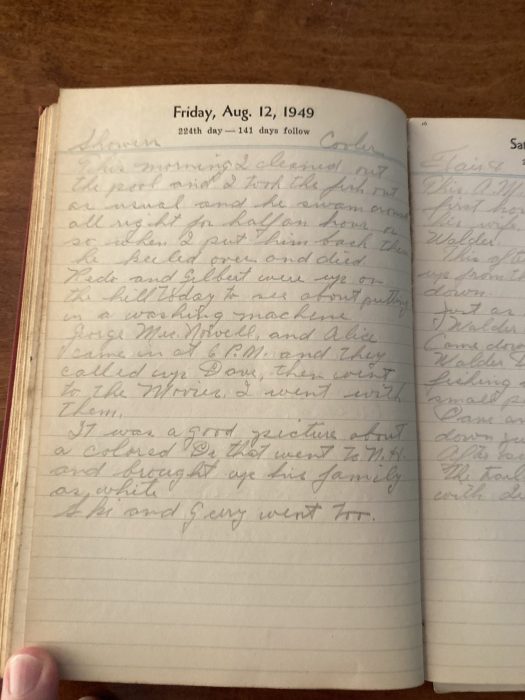 Friday, Aug. 12, 1949
224th day — 141 days follow
Showers Cooler
This morning I cleaned out
the pool and I took the fish out
as usual and he swam around
all right for half an hour or
so when I put him back then
he keeled over and died
Redo and Gilbert were up on
the hill today to see about putting
in a washing machine
George Mrs. Nowell, and Alice
came in at 6 P.M. and they
called up Dave, then went
to the Movies. I went with
them.
It was a good picture about
a colored Dr that went to N.H.
and brought up his family
as white
Ski and Gerry went too.
Sat
Fair &
This A.M
first
his wife
Walder.
This aft
up from th
down.
Just as
Walder
Came down
Walder
fishing
small p
Dave an
down
Alice
The
with